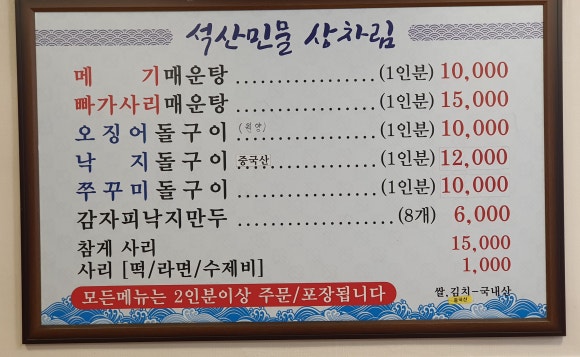 석산민물 상차림
메 기매운탕 (1인분) 10,000
빠가사리매운탕 (1인분) 15,000
오징어돌구이 (원양) (1인분) 10,000
낙 지돌구이 중국산 (1인분) 12,000
쭈꾸미돌구이 (1인분) 10,000
감자피낙지만두 (8개) 6,000
참게 사리 15,000
사리 [떡/라면/수제비] 1,000
모든메뉴는 2인분이상 주문/포장됩니다
쌀,김치-국내산
중국산